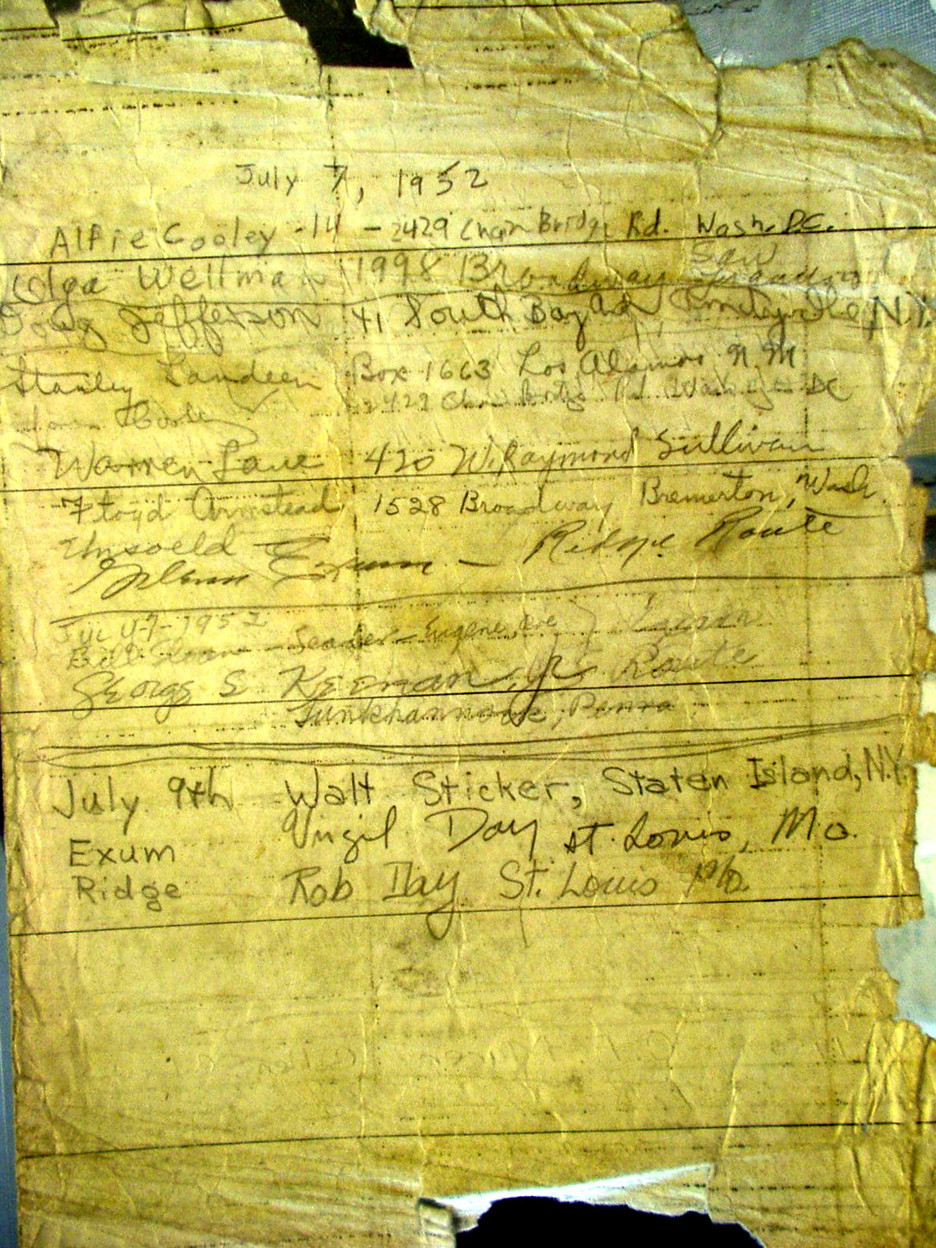 July 7, 1952
Alfie Cooley -14 - 2429 Chain Bridge Rd. Wash. D.C.
Olga Wellman 1998 Broadway San
Doug Jefferson 41 South Bay N.Y.
Stanley Landeen Box 1663 Los Alamos N.M
Cooley 2429 Chain Bridge Rd. Wash DC
Warren Lane 420 W. Raymond Sullivan
Floyd Armstead 1528 Broadway Bremerton, Wash.
Unsoeld
Glenn Exum - Ridge Route
1952
Bill Sloane - Leader - Eugene, Ore } Exum
George E Keeman, Jr. Route
Tunkhannock, Penna
July 9th Walt Sticker, Staten Island, N.Y.
Exum Virgil Day St. Louis, Mo.
Ridge Rob Day St. Louis Mo.